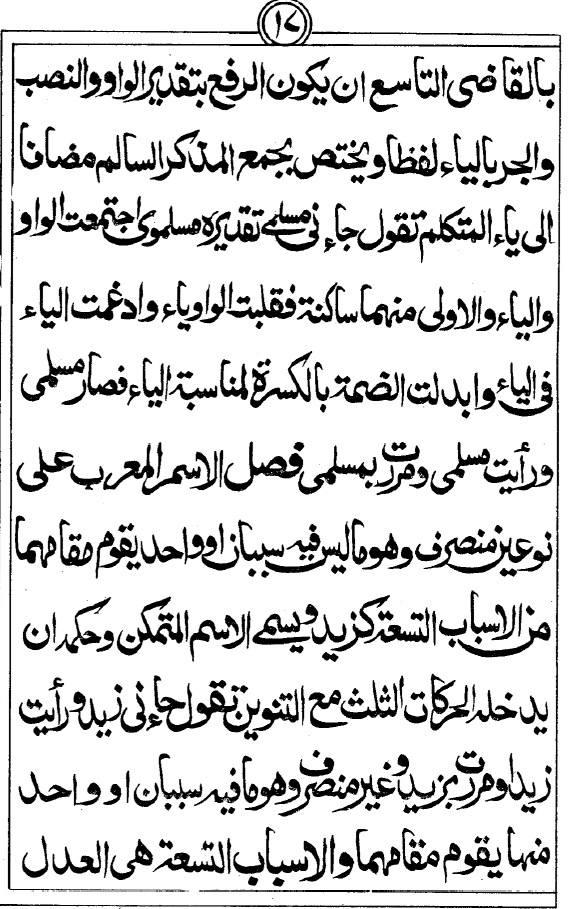 ١٧
بالقاضى التاسع ان يكون الرفع بتقدير الواو والنصب
والجر بالياء لفظا ويختص بجمع المذكر السالم مضافا
الى ياء المتكلم تقول جاءنى مسلمى تقديره مسلموى اجتمعت الواو
والياء والاولى منهما ساكنة فقلبت الواو ياء وادغمت الياء
فى الياء وابدلت الضمة بالكسرة لمناسبة الياء فصار مسلمى
ورأيت مسلمى ومررت بمسلمى فصل الاسم المعرب على
نوعين منصرف وهو ما ليس فيه سببان او واحد يقوم مقامهما
من الاسباب التسعة كزيد ويسمى الاسم المتمكن وحكمه ان
يدخله الحركات الثلث مع التنوين تقول جاءنى زيد ورأيت
زيدا ومررت بزيد وغير منصرف وهو ما فيه سببان او واحد
منها يقوم مقامهما والاسباب التسعة هى العدل